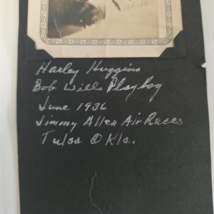 Harley Huggins
Bob Wills Playboy
June 1936
Jimmy Allen Air Races
Tulsa Okla.